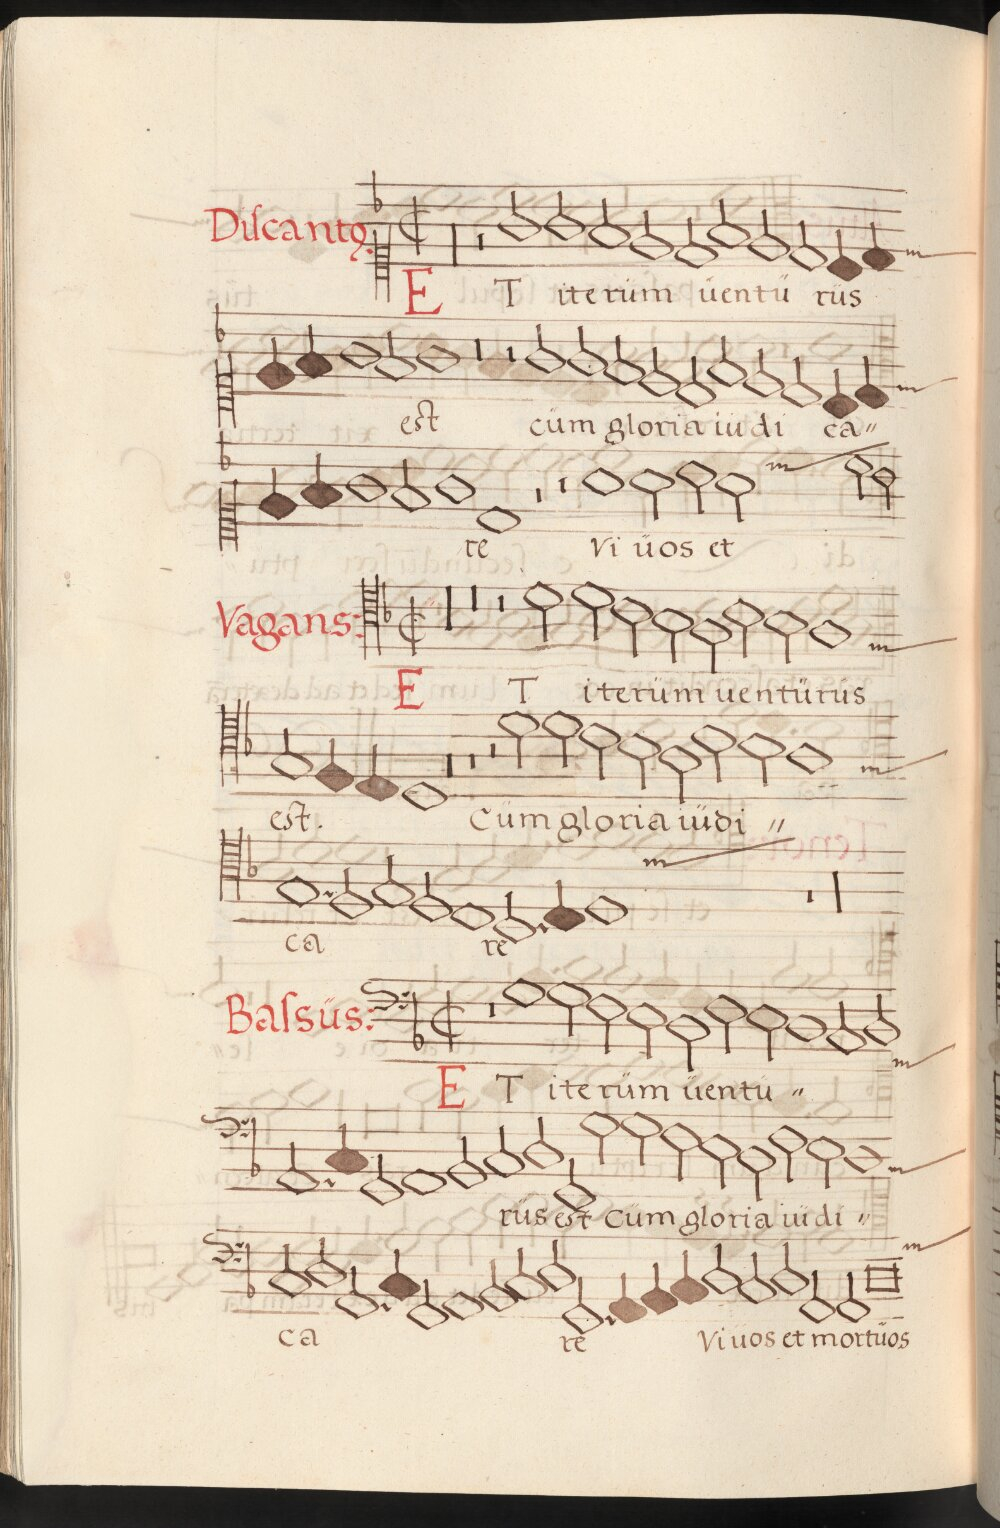 Diſcantꝯ.
E T iterüm üentü rüs
est cüm gloria iüdi ca〃
re Vi üos et
Vagans:
E T iterüm uentürüs
est. Cüm gloria iüdi 〃
ca re
Baſsüs:
E T iterüm üentü 〃
rüs est Cüm gloria iüdi 〃
ca re Vi üos et mortüos